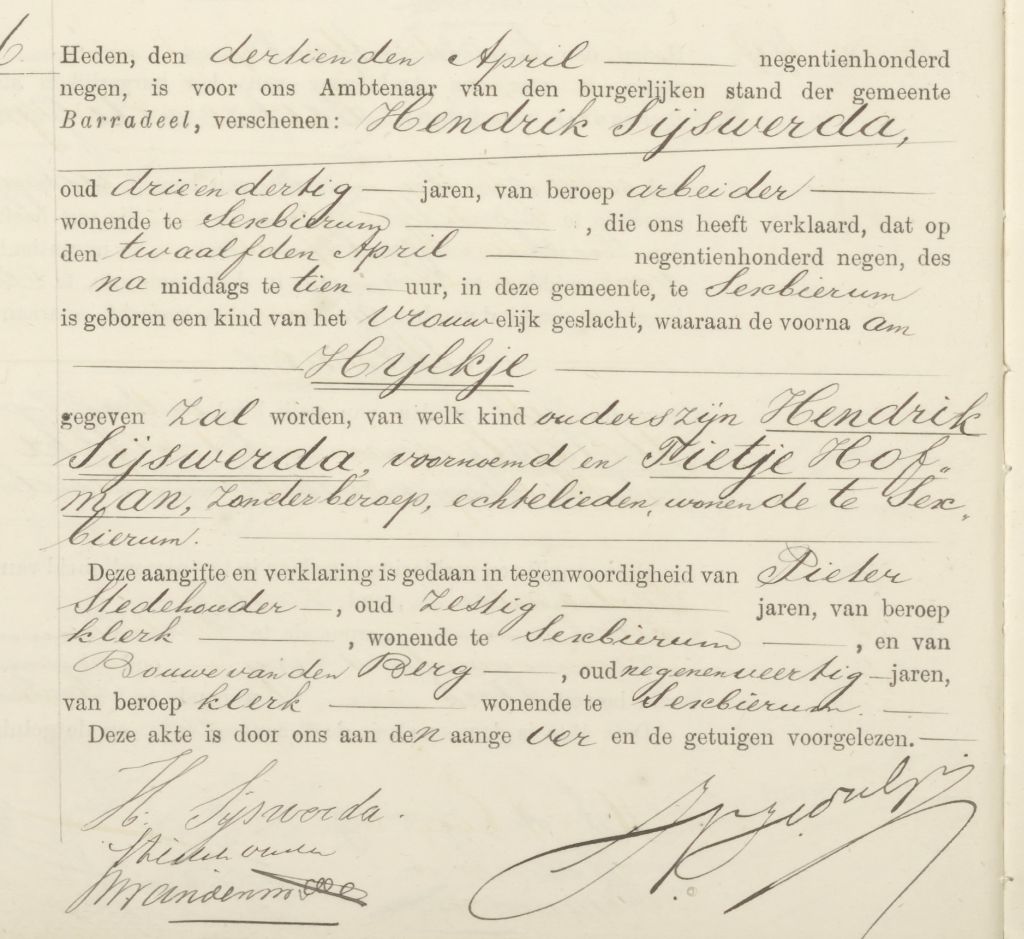 6.
Heden, den dertienden April negentienhonderd
negen, is voor ons Ambtenaar van den burgerlijken stand der gemeente
Barradeel, verschenen: Hendrik Sijswerda,
oud drie en dertig jaren, van beroep arbeider
wonende te Sexbierum, die ons heeft verklaard, dat op
den twaalfden April negentienhonderd negen, des
na middags te tien uur, in deze gemeente, te Sexbierum
is geboren een kind van het vrouwelijk geslacht, waaraan de voornaam
Hylkje
gegeven zal worden, van welk kind ouders zijn Hendrik
Sijswerda, voornoemd en Tietje Hof„
man, zonder beroep, echtelieden, wonende te Sex„
bierum.
Deze aangifte en verklaring is gedaan in tegenwoordigheid van Pieter
Stedehouder, oud zestig jaren, van beroep
klerk, wonende te Sexbierum, en van
Bouwe van den Berg, oud negenenveertig jaren,
van beroep klerk wonende te Sexbierum.
Deze akte is door ons aan den aangever en de getuigen voorgelezen.
H. Sijswerda.
Stedehouder